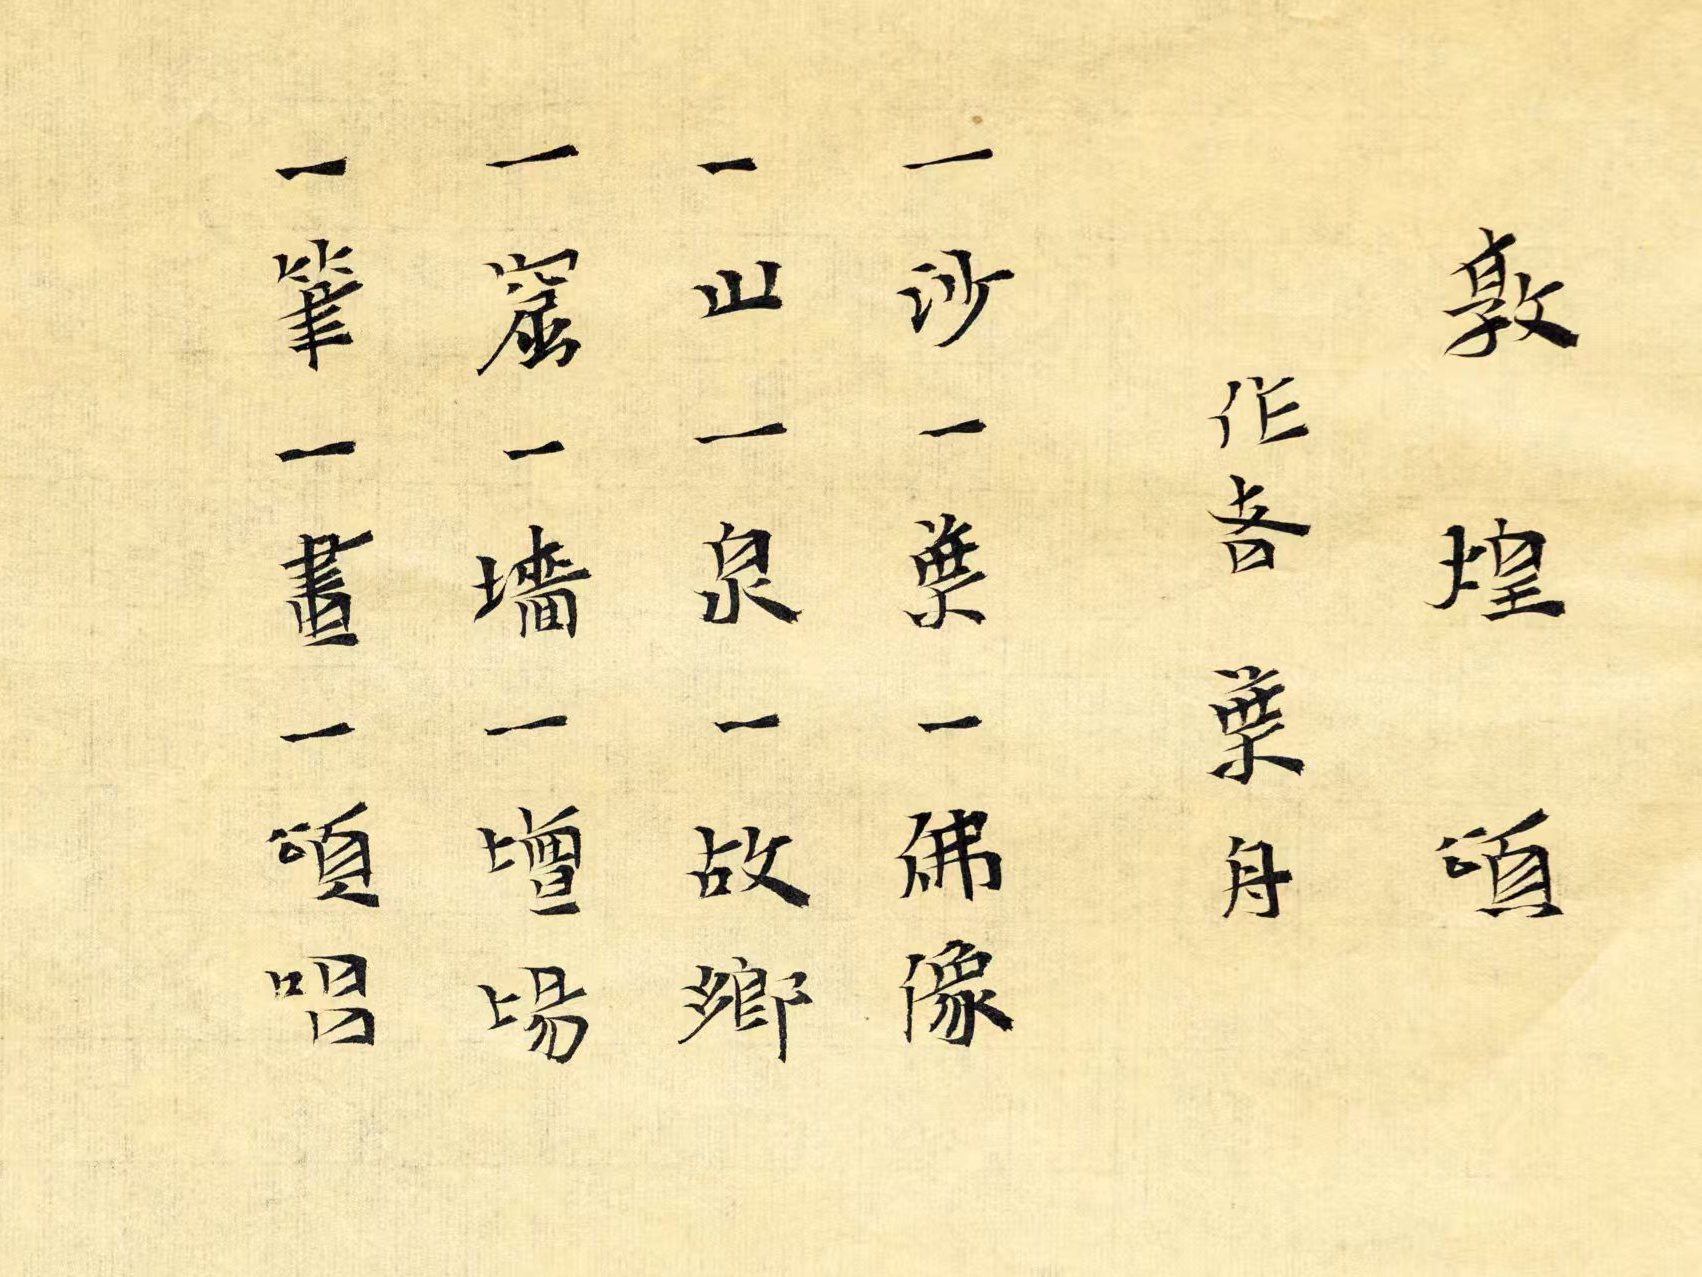 敦煌頌
作者 葉舟
一沙一葉一佛像
一山一泉一故鄉
一窟一墻一壇場
一筆一畫一頌唱